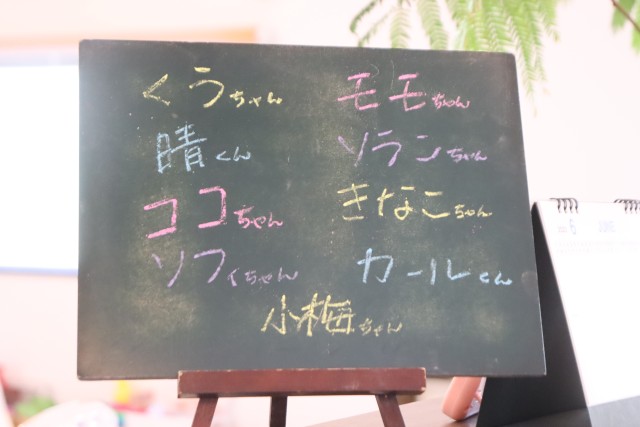 くうちゃん
モモちゃん
晴くん
ソランちゃん
ココちゃん
きなこちゃん
ソフィちゃん
カールくん
小梅ちゃん
6